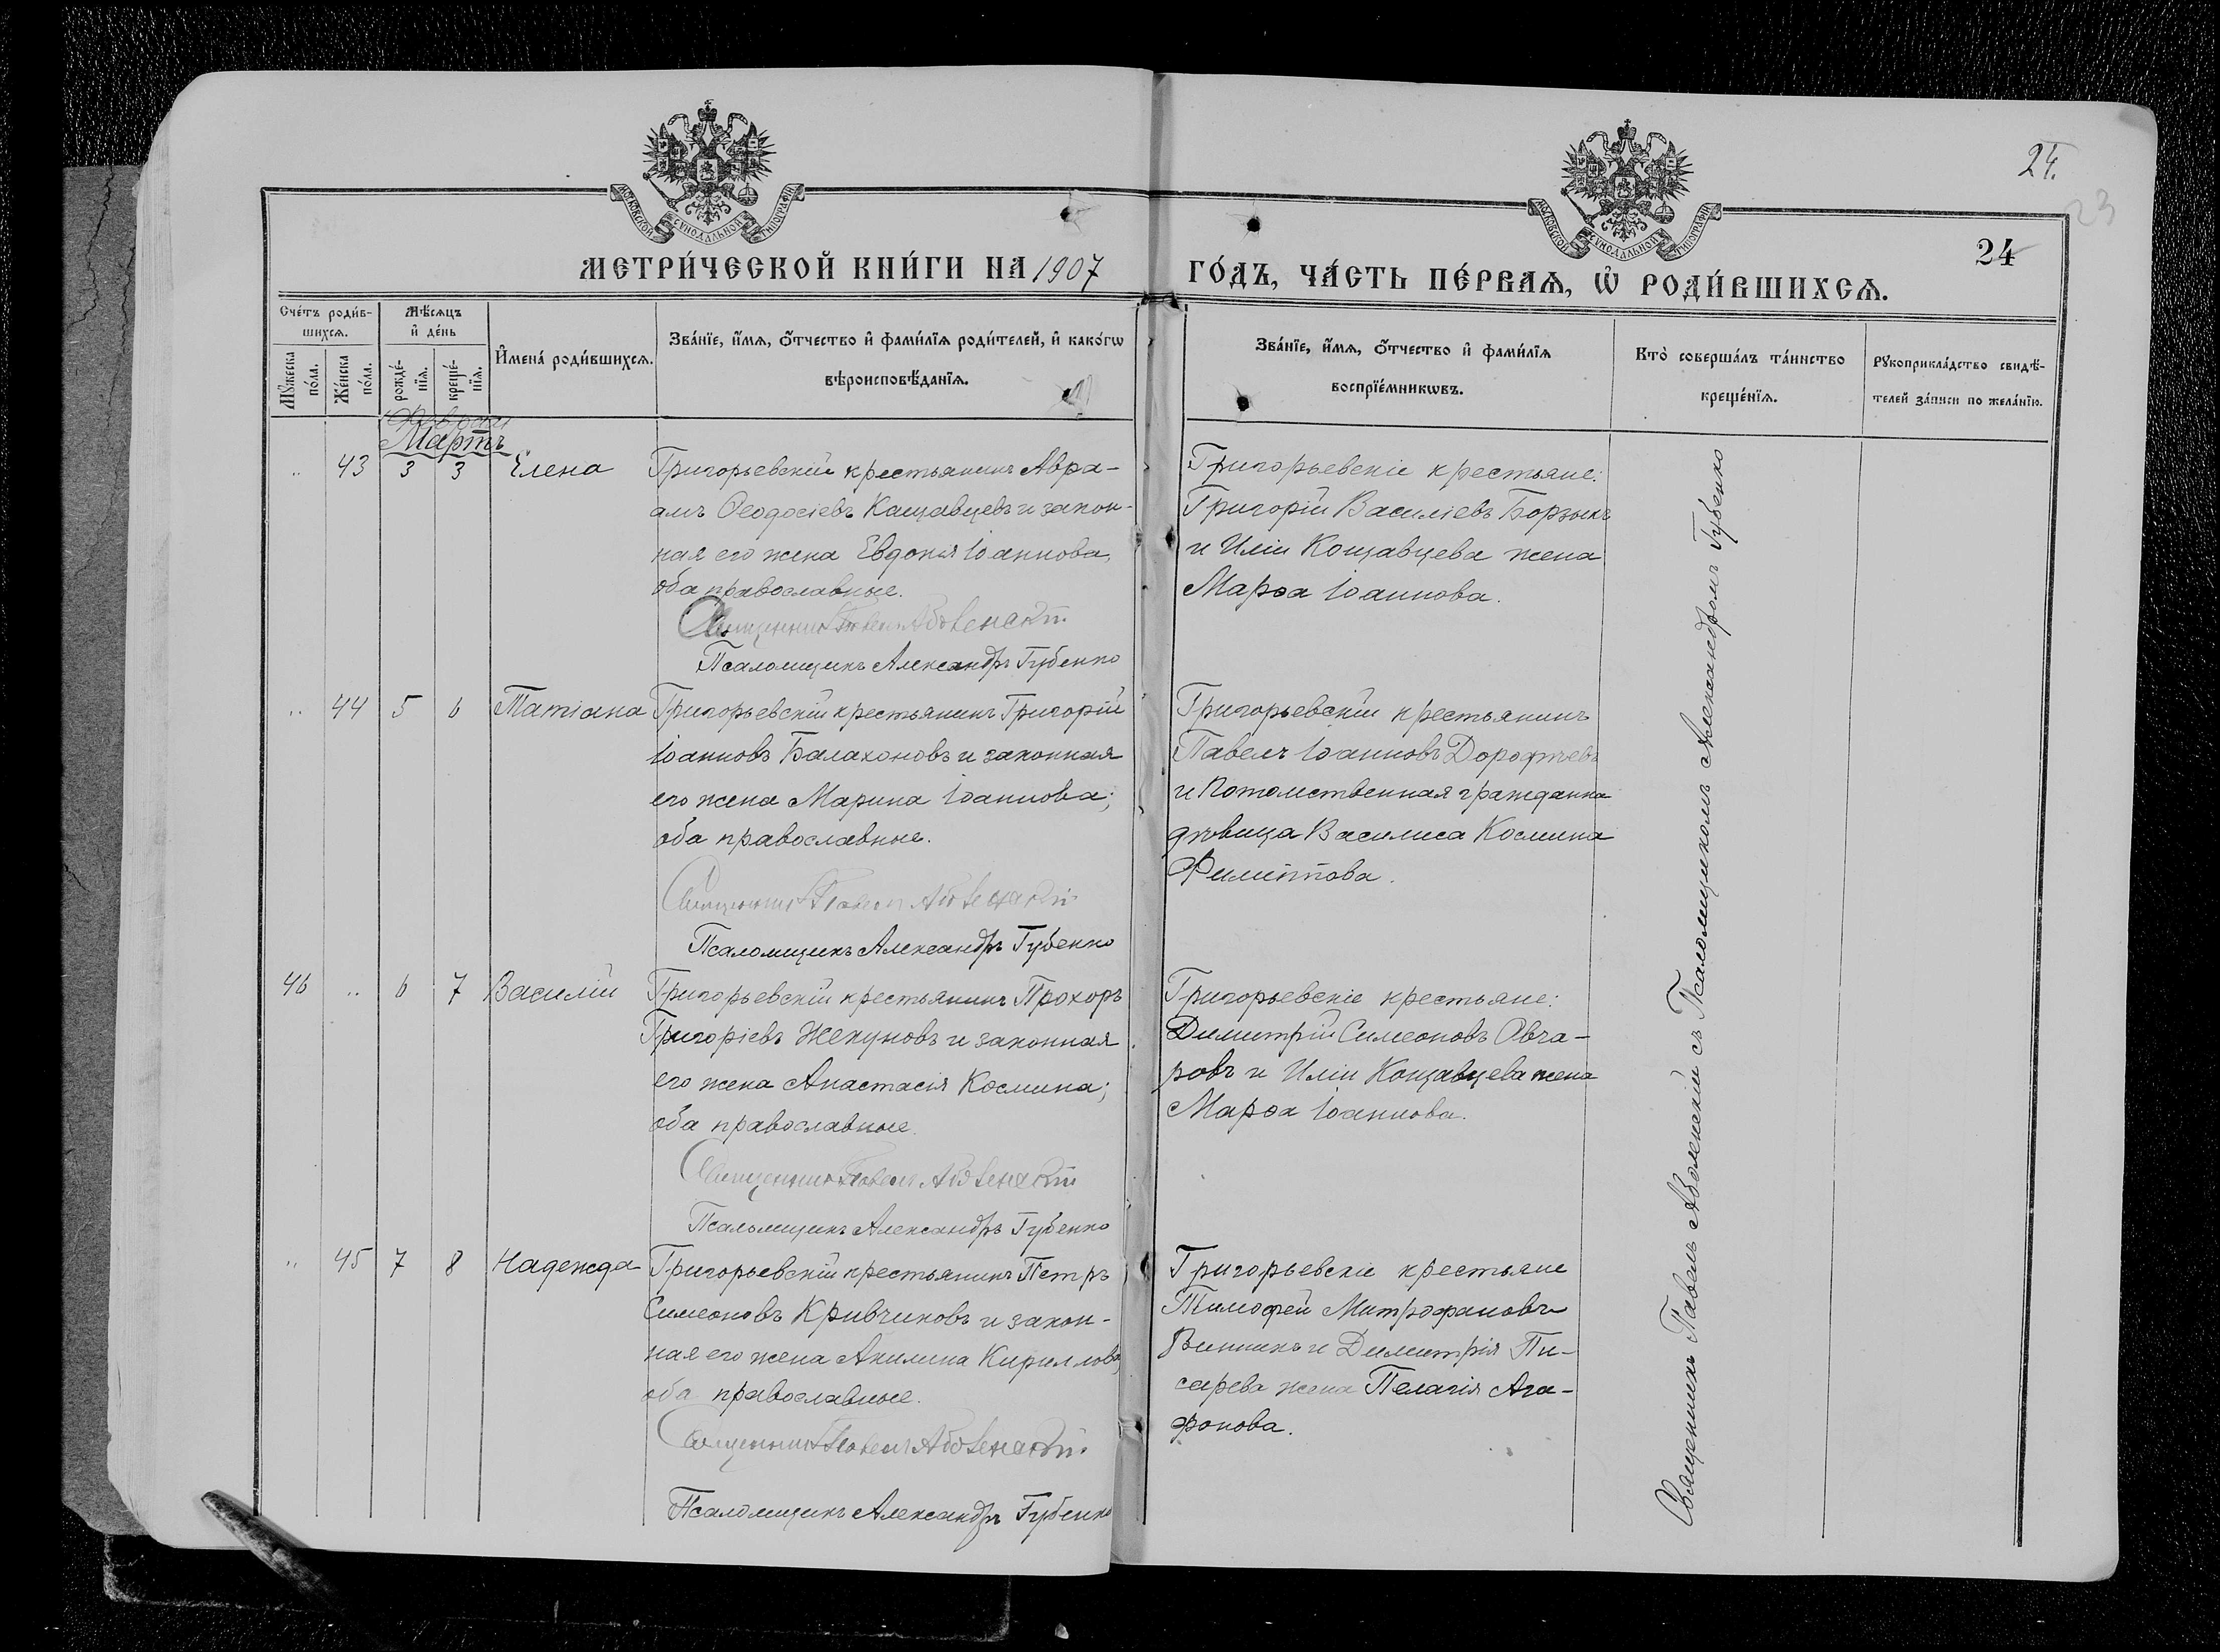 24.
23
МОСКОВСКОЙ СѴНОДАЛЬНОЙ ТИПОГРАФІИ
МОСКОВСКОЙ СѴНОДАЛЬНОЙ ТИПОГРАФІИ
24
МЕТРИ́ЧЕСКОЙ КНИ́ГИ НА 1907
ГО́ДЪ, ЧА́СТЬ ПЕ́РВАѦ, Ѡ҆ РОДИ́ВШИХСѦ.
Сче́тъ роди́в-
шихсѧ.
Мꙋ́жеска по́ла.
Же́нска по́ла.
Мѣ́сѧцъ
и҆ де́нь
рожде́-
нїѧ.
креще́-
нїѧ.
И҆мена̀ роди́вшихсѧ.
Зва́нїе, и҆́мѧ, ѻ҆́тчество и҆ фами́лїѧ роди́телей, и҆ како́гѡ
вѣроисповѣ́данїѧ.
Зва́нїе, и҆́мѧ, ѻ҆́тчество и҆ фами́лїѧ
воспрїе́мникѡвъ.
Кто̀ соверша́лъ та́инство
креще́нїѧ.
Рꙋкоприкла́дство свидѣ́-
телей за́писи по жела́нїю.
Мартъ
.. 43 3 3 Елена
Григорьевскій крестьянинъ Авра-
амъ Ѳеодосіевъ Кащавцевъ и закон-
ная его жена Евдокія Іоаннова,
оба православные.
Священникъ Павелъ Або
Псаломщикъ Александръ Губенко
Григорьевскіе крестьяне:
Григорій Василіевъ Борзыкъ
и Иліи Кощавцева жена
Марѳа Іоаннова.
.. 44 5 6 Татіана
Григорьевскій крестьянинъ Григорій
Іоанновъ Балахоновъ и законная
его жена Марина Іоаннова;
оба православные.
Священникъ Павелъ
Псаломщикъ Александръ Губенко
Григорьевскій крестьянинъ
Павелъ Іоанновъ Дорофѣевъ
и Потомственная гражданка
дѣвица Василиса Космина
Филиппова.
46 .. 6 7 Василій
Григорьевскій крестьянинъ Прохоръ
Григоріевъ Жекуновъ и законная
его жена Анастасія Космина;
оба православные.
Священникъ Павелъ
Псаломщикъ Александръ Губенко
Григорьевскіе крестьяне:
Димитрій Симеоновъ Овча-
ровъ и Иліи Кощавцева жена
Марѳа Іоаннова.
.. 45 7 8 Надежда
Григорьевскій крестьянинъ Петръ
Симеоновъ Кривчиковъ и закон-
ная его жена Акилина Кириллова,
оба православные.
Священникъ Павелъ
Псаломщикъ Александръ Губенко
Григорьевскіе крестьяне
Тимофей Митрофановъ
Винникъ и Димитрія Пи-
сарева жена Пелагія Ага-
фонова.
Священникъ Павелъ съ Псаломщикомъ Александромъ Губенко